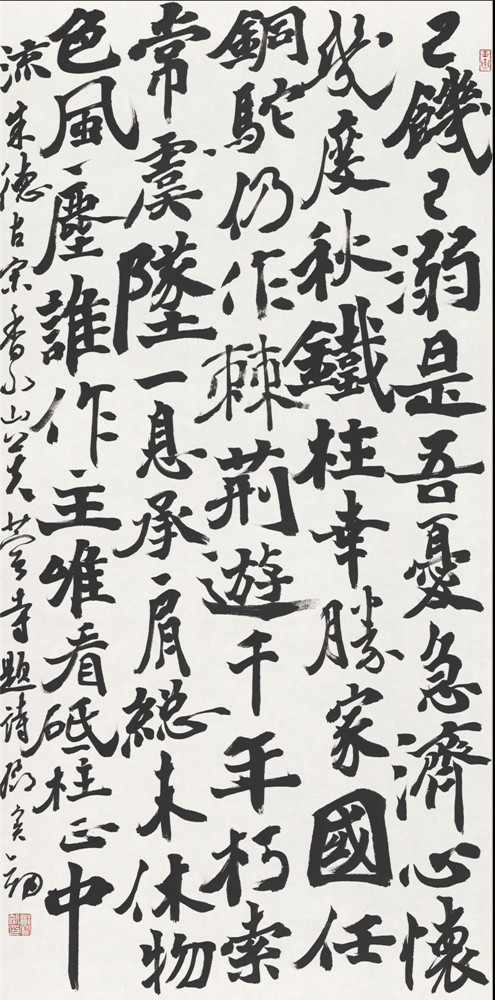 己饑己溺是吾憂急濟心懷
幾度秋鐵柱幸勝家國任
銅駝仍作棘荆遊千年朽索
常虞墜一息承肩總未休物
色風塵誰作主唯看砥柱正中
流 朱德古宋香水山芙蓉寺題詩